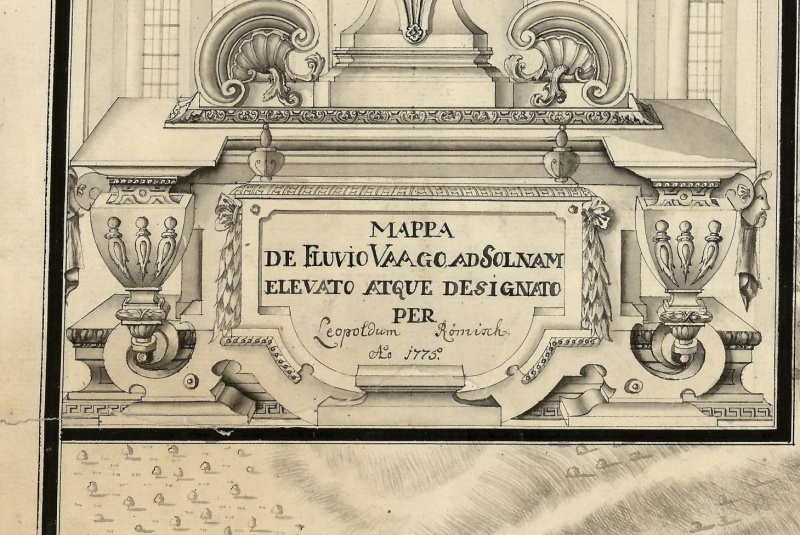 MAPPA
DE FLUVIO VAAGO, AD SOLNAM
ELEVATO ATQUE DESIGNATO
PER
Leopoldum Römisch.
Ao 1775o